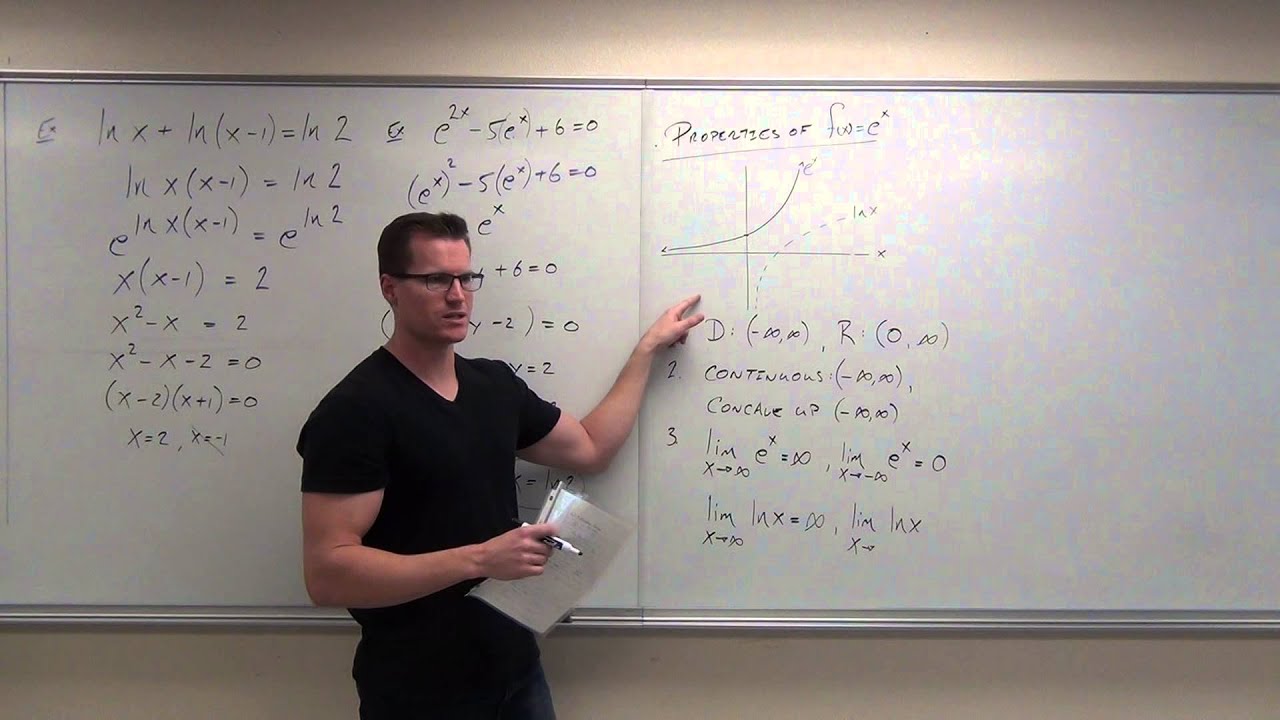 Ex ln x + ln(x-1) = ln 2
ln x(x-1) = ln 2
e^{ln x(x-1)} = e^{ln 2}
x(x-1) = 2
x² - x = 2
x² - x - 2 = 0
(x-2)(x+1) = 0
x = 2, x = -1
Ex e^{2x} - 5(e^x) + 6 = 0
(e^x)² - 5(e^x) + 6 = 0
e^x
+ 6 = 0
( y - 2 ) = 0
y = 2
x = ln 2
. Properties of f(x) = e^x
e^x
ln x
x
D: (-∞,∞), R: (0, ∞)
2. Continuous: (-∞,∞),
Concave up (-∞,∞)
3. lim x→∞ e^x = ∞, lim x→-∞ e^x = 0
lim x→∞ ln x = ∞, lim x→ ln x